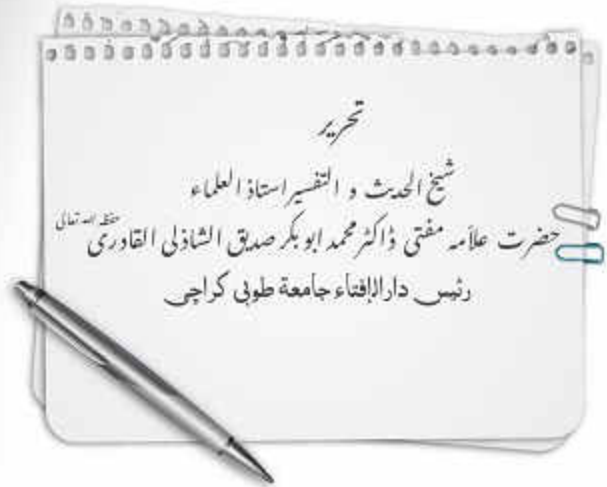 تحریر
شیخ الحدیث و التفسیر استاذ العلماء
حضرت علاّمہ مفتی ڈاکٹر محمد ابو بکر صدیق الشاذلی القادری حفظہ اللہ تعالی
رئیس دارالإفتاء جامعة طوبی کراچی